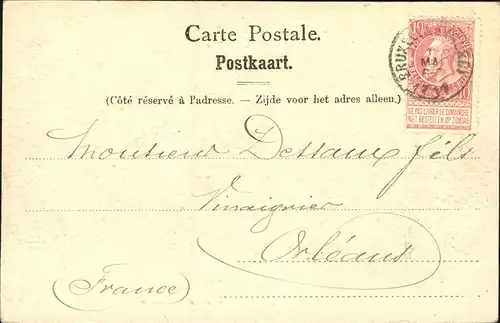 Carte Postale.
Postkaart.
(Côté réservé à l'adresse. — Zijde voor het adres alleen.)
10 10
NE PAS LIVRER LE DIMANCHE
NIET BESTELLEN OP ZONDAG
MAI
Monsieur Dessaux fils
Vinaigrier
Orléans
(France)